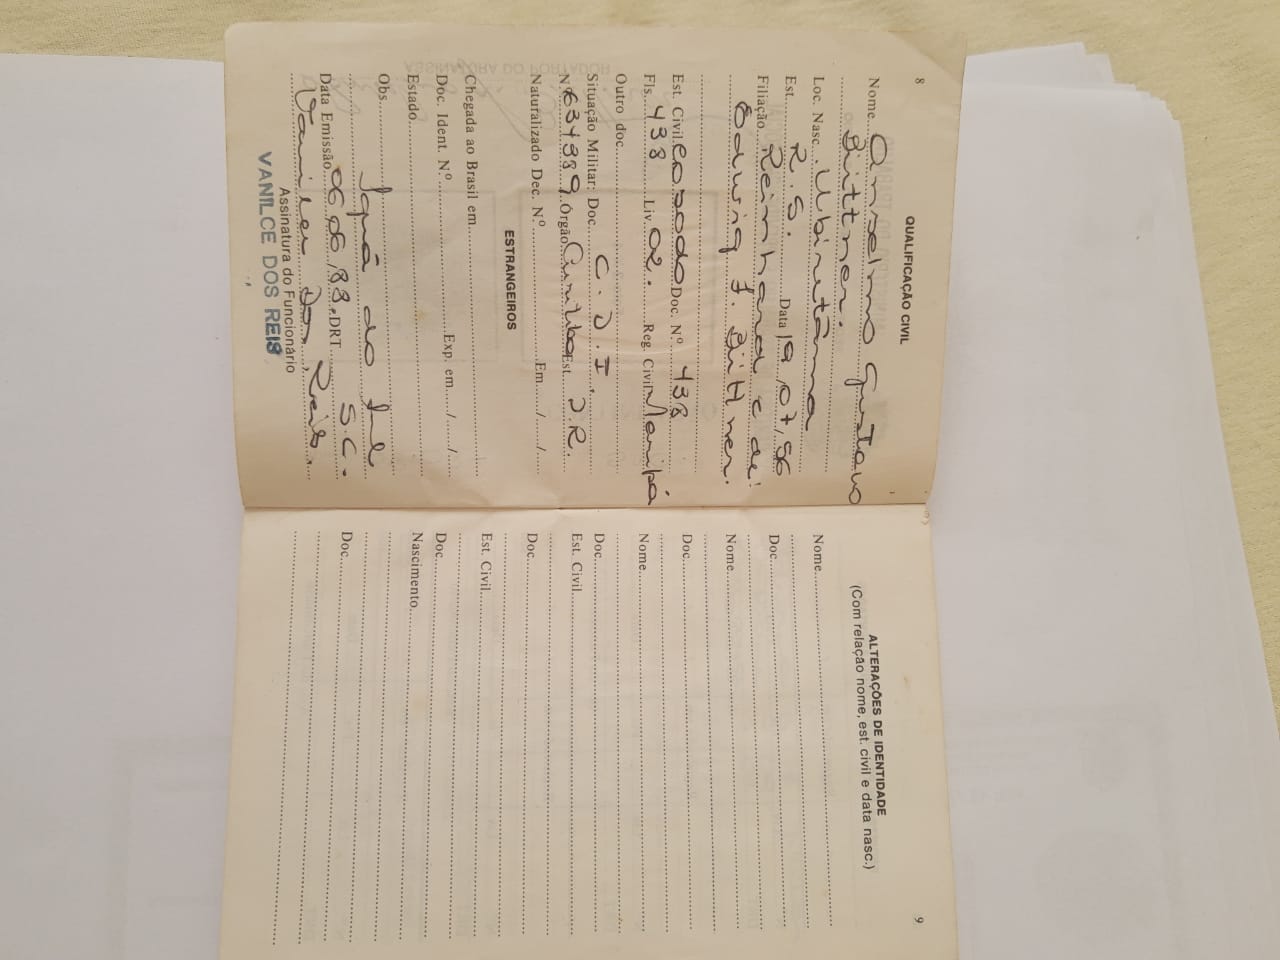 8
QUALIFICAÇÃO CIVIL
Nome Anselmo Gustavo
Büttner.
Loc. Nasc. Ubiretãma
Est. R.S. Data 19,07,56
Filiação Reinhard e de
Edwig I. Büttner.
Est. Civil Casado Doc. Nº 438
Fls. 438 Liv. 02. Reg. Civil Maripá
Outro doc.
Situação Militar: Doc. C.D.I.
Nº 634389 Órgão Curitiba Est. P.R.
Naturalizado Dec. N.º Em / /
ESTRANGEIROS
Chegada ao Brasil em
Doc. Ident. Nº Exp. em / /
Estado
Obs.
Jguá do Sul
Data Emissão 06,06,88, DRT S.C.
Vanilce Dos Reis.
Assinatura do Funcionário
VANILCE DOS REIS
9
ALTERAÇÕES DE IDENTIDADE
(Com relação nome, est. civil e data nasc.)
Nome
Doc.
Nome
Doc.
Nome
Doc.
Est. Civil
Doc.
Est. Civil
Doc.
Nascimento
Doc.